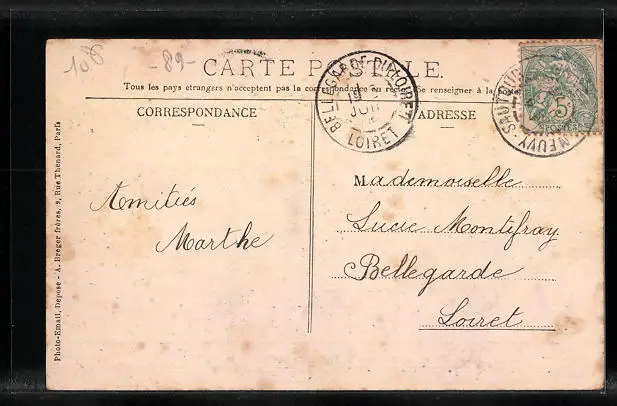 106
-89-
CARTE POSTALE.
Tous les pays étrangers n'acceptent pas la correspondance au recto. (Se renseigner à la poste
CORRESPONDANCE
ADRESSE
BELLEGARDE-DU-LOIRET
LOIRET
NEUVY-SAUTOUR
5
Amitiés
Marthe
Mademoiselle
Lucie Montifray
Bellegarde
Loiret
Photo-Email, Déposé - A. Breger frères, 9, Rue Thenard, Paris